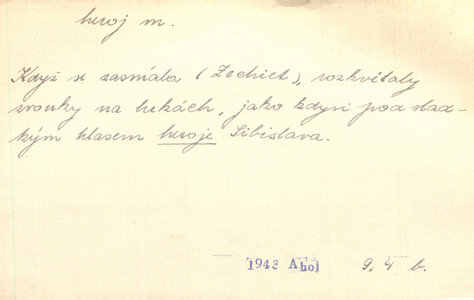 heroj m.
Když se zasmála (Zechiet), rozkvétaly
zvonky na lukách, jako kdysi pod slad-
kým hlasem heroje Sibislava.
1943 Ahoj 9, 4 b.